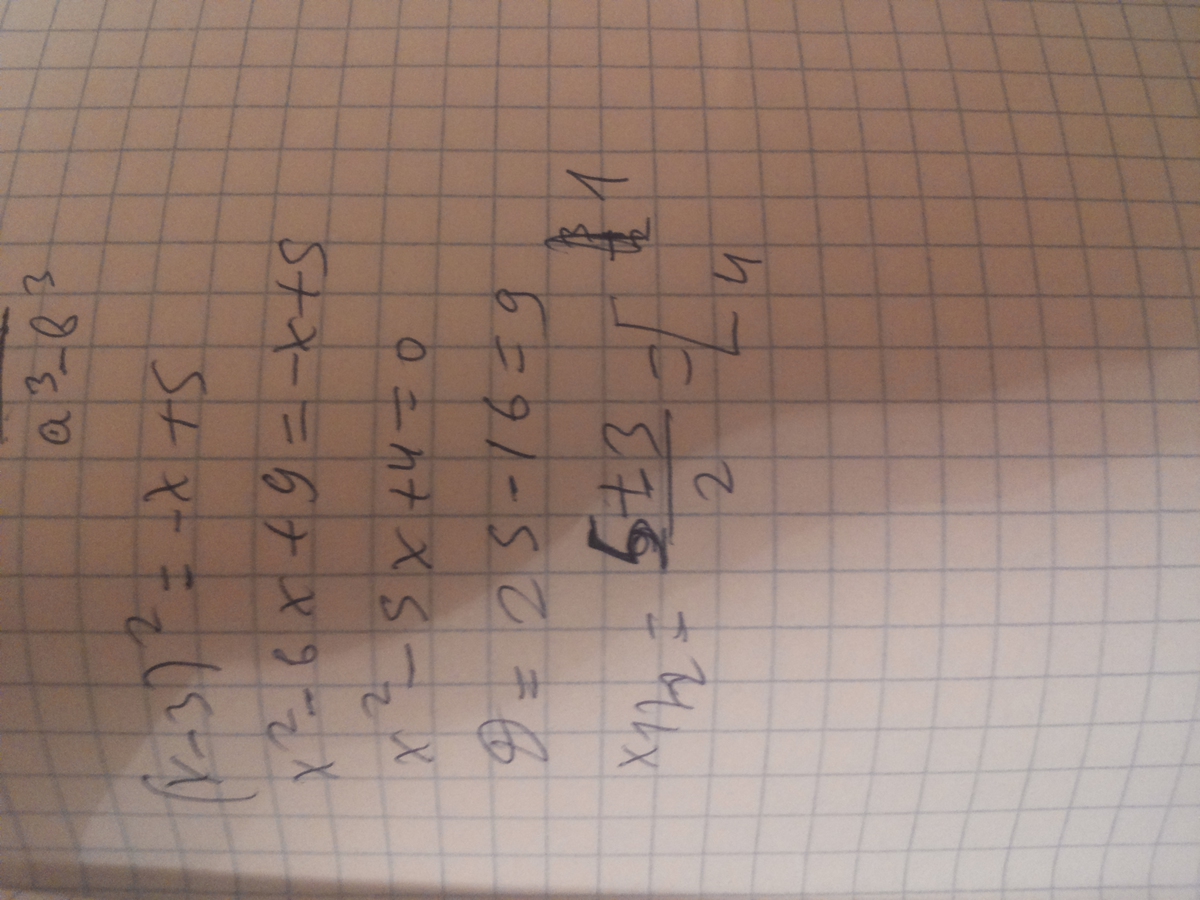 a³-b³
(x-3)²=-x+5
x²-6x+9=-x+5
x²-5x+4=0
D=25-16=9
x1,2=(5±3)/2=[1
4